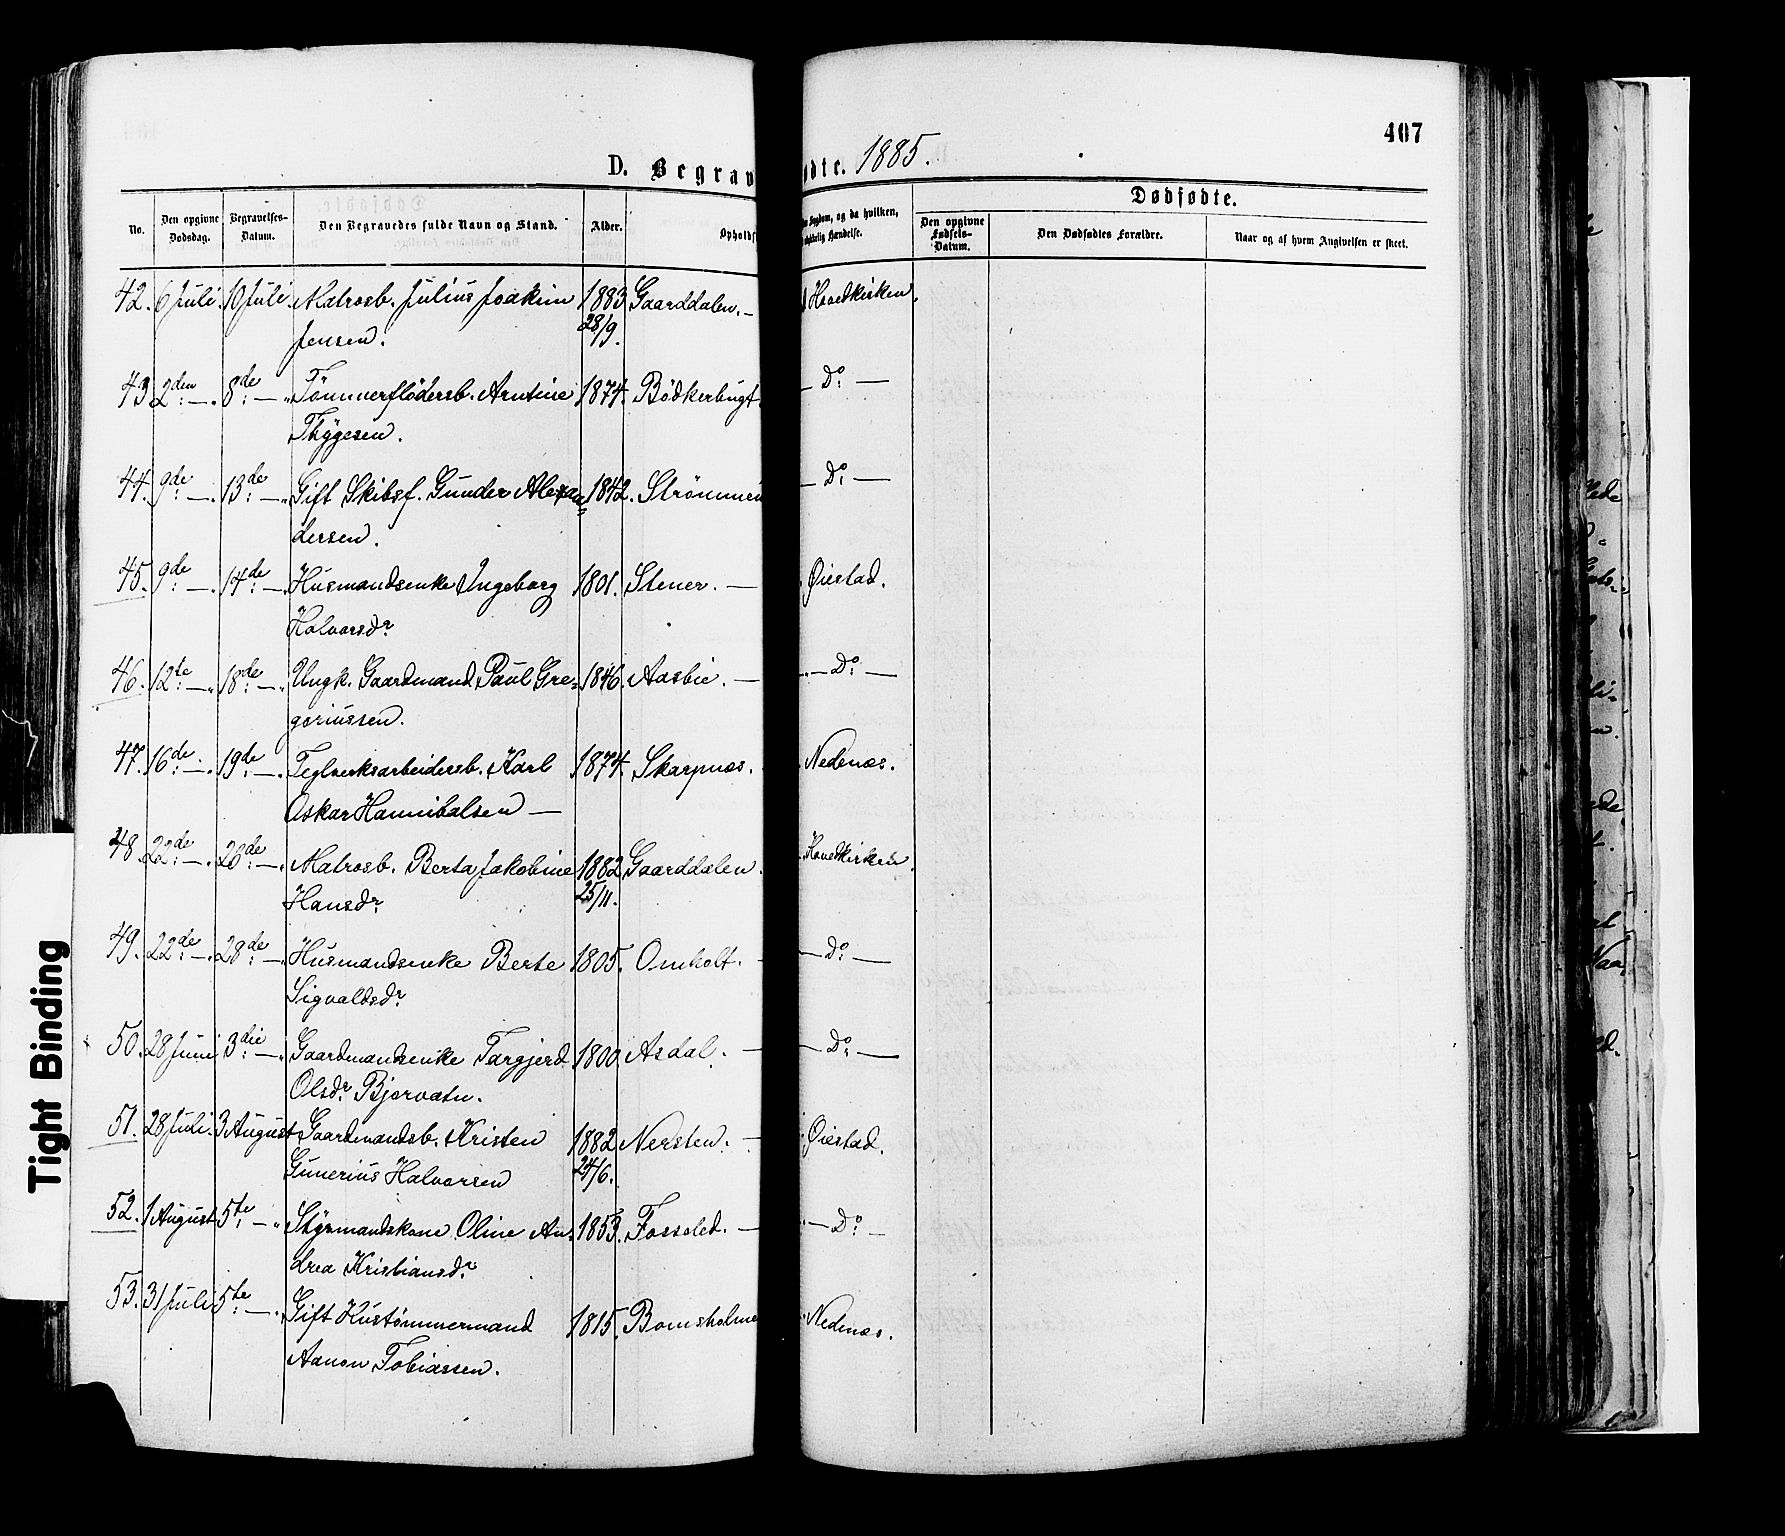 407
D. Begrav
ødte. 1885.
Dødfødte.
No.
Den opgivne Dødsdag.
Begravelses-Datum.
Den Begravedes fulde Navn og Stand.
Alder.
Opholdss
Sygdom, og da hvilken,
ulykkelig Hændelse.
Den opgivne Fødsels-Datum.
Den Dødfødtes Forældre.
Naar og af hvem Angivelsen er skeet.
42. 6 Juli. 10 Juli. Matrosb. Julius Joakim 1883 Gaarddalen. — Hovedkirken.
Jensen. 28/9.
43 2den — 8de — Tømmerflødersb. Arntine 1874. Bödkerbugt — Do —
Thygesen.
44. 9de — 13de — Gift Skibsf. Gunder Alexan= 1842. Strömmen — Do —
dersen.
45. 9de — 14de — Husmandsenke Ingeborg 1801. Stener. — Øiestad.
Halvorsdr
46. 12te — 18de — Ungk. Gaardmand Paul Gre= 1846. Aasbie. — Do —
goriussen.
47. 16de — 19de — Teglverksarbeidersb. Karl 1874. Skarpnæs. Nedenæs.
Oskar Hannibalsen —
48 22de — 26de — Matrosb. Berta Jakobine 1882 Gaarddalen. Hovedkirken.
Hansdr 25/11.
49. 22de — 28de — Husmandsenke Berte 1805. Omholt. — Do —
Sigvaldsdr
50. 28 Juni 3die — Gaardmandsenke Targjerd 1800. Asdal. — Do —
Olsdr Bjorvatn.
51. 28 Juli. 3 August Gaardmandsb. Kristen 1882 Nersten. — Øiestad.
Gunerius Halvorsen 24/6.
52. 1 August 5te — Styrmandskone Oline An= 1853. Fosseled. — Do —
drea Kristiansdr
53. 31 Juli 5te — Gift Hustömmermand 1815. Bomsholme Nedenæs.
Aanon Tobiassen.
Tight Binding